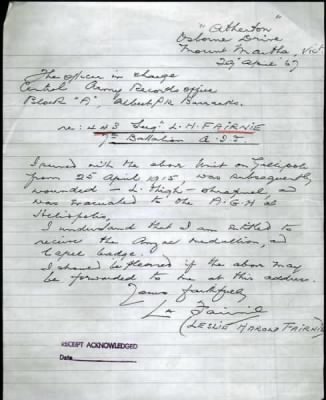 "Atherton"
Osborne Drive
Mount Martha, Vict
29 April '67
The Officer in Charge
Central Army Records Office
Block "A", Albert Pk Barracks.
re: 443 Sug L. H. FAIRNIE
7th Battalion A.I.F.
I served with the above Unit on Gallipoli
from 25 April 1915, was subsequently
wounded - L. Thigh - shrapnel and
was evacuated to the A.G.H at
Heliopolis,
I understand that I am entitled to
receive the Anzac Medallion, and
Lapel badge.
I should be pleased if the above may
be forwarded to me at this address.
Yours faithfully
L H Fairnie
(LESLIE HAROLD FAIRNIE
RECEIPT ACKNOWLEDGED
Date